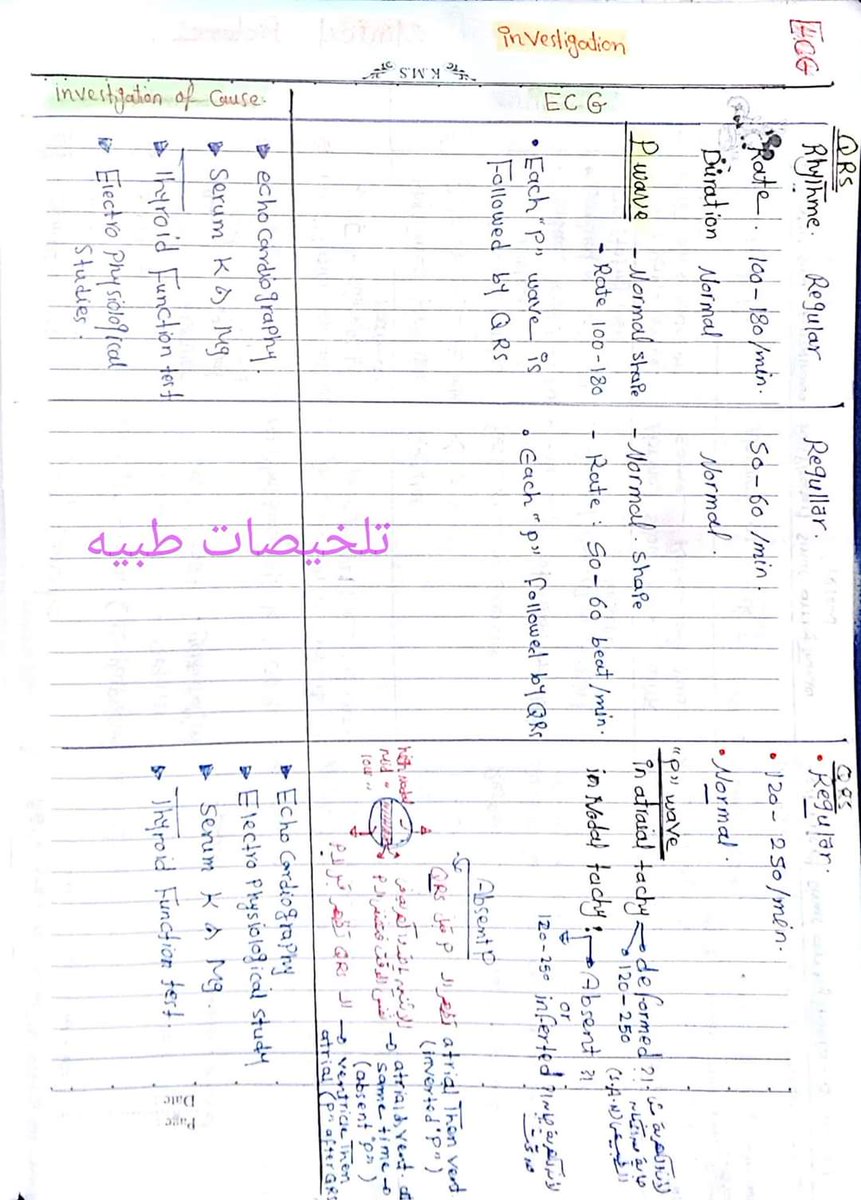 ECG
investigation
K.M.S
ECG
investigation of Cause.
QRS
Rhythme. Regular
Rate. 100-180/min.
Duration Normal
P wave - Normal shape
- Rate 100-180
• Each "P" wave is
Followed by QRS
echo Cardiography.
Serum K & Mg
Thyroid Function test
Electro physiological
Studies.
Regullar.
50-60/min.
Normal.
- Normal. shape
- Rate: 50-60 beat/min.
• Each "P" followed by QRS
تلخيصات طبيه
QRS
• Regular.
• 120-250/min.
• Normal.
"P" wave
in atraial tachy → deformed ?!
120-250
in Nodal tachy: → Absent ?!
or
120-250 inferted ?!
Absent P
high nodal
mid "
low "
تظهر الـ P قبل QRS
atrial Then vent.
(inverted "P")
→ atrial & vent. at
same time →
(absent "P")
الـ QRS تظهر قبل الـ P
→ ventricle Then
atrial (P" after QRS
Echo Cardiography
Electro physiological study
Serum K & Mg.
Thyroid Function test.
Page:
Date: